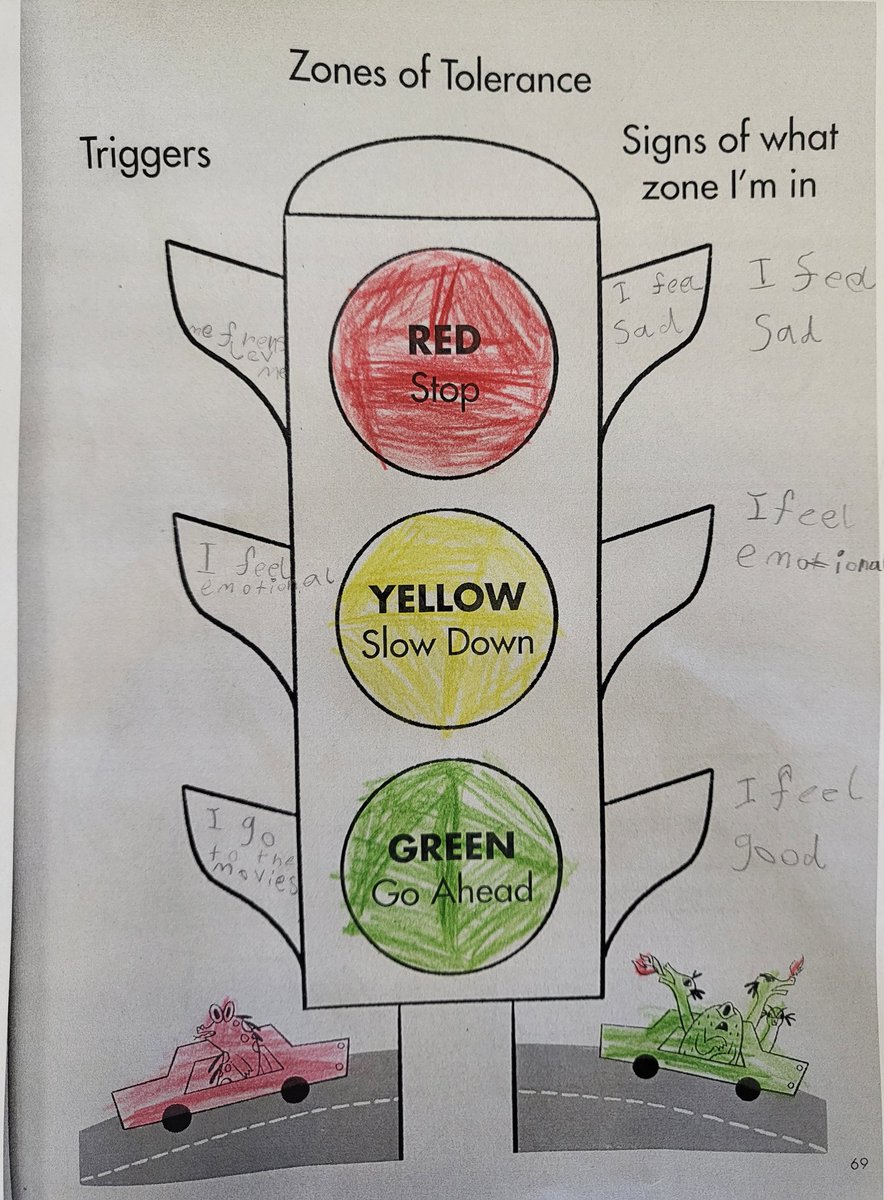 Zones of Tolerance
Triggers
Signs of what
zone I'm in
me frens
lev
me
RED
Stop
I feel
sad
I feel
sad
I feel
emotional
YELLOW
Slow Down
I feel
emotional
I go
to the
movies
GREEN
Go Ahead
I feel
good
69